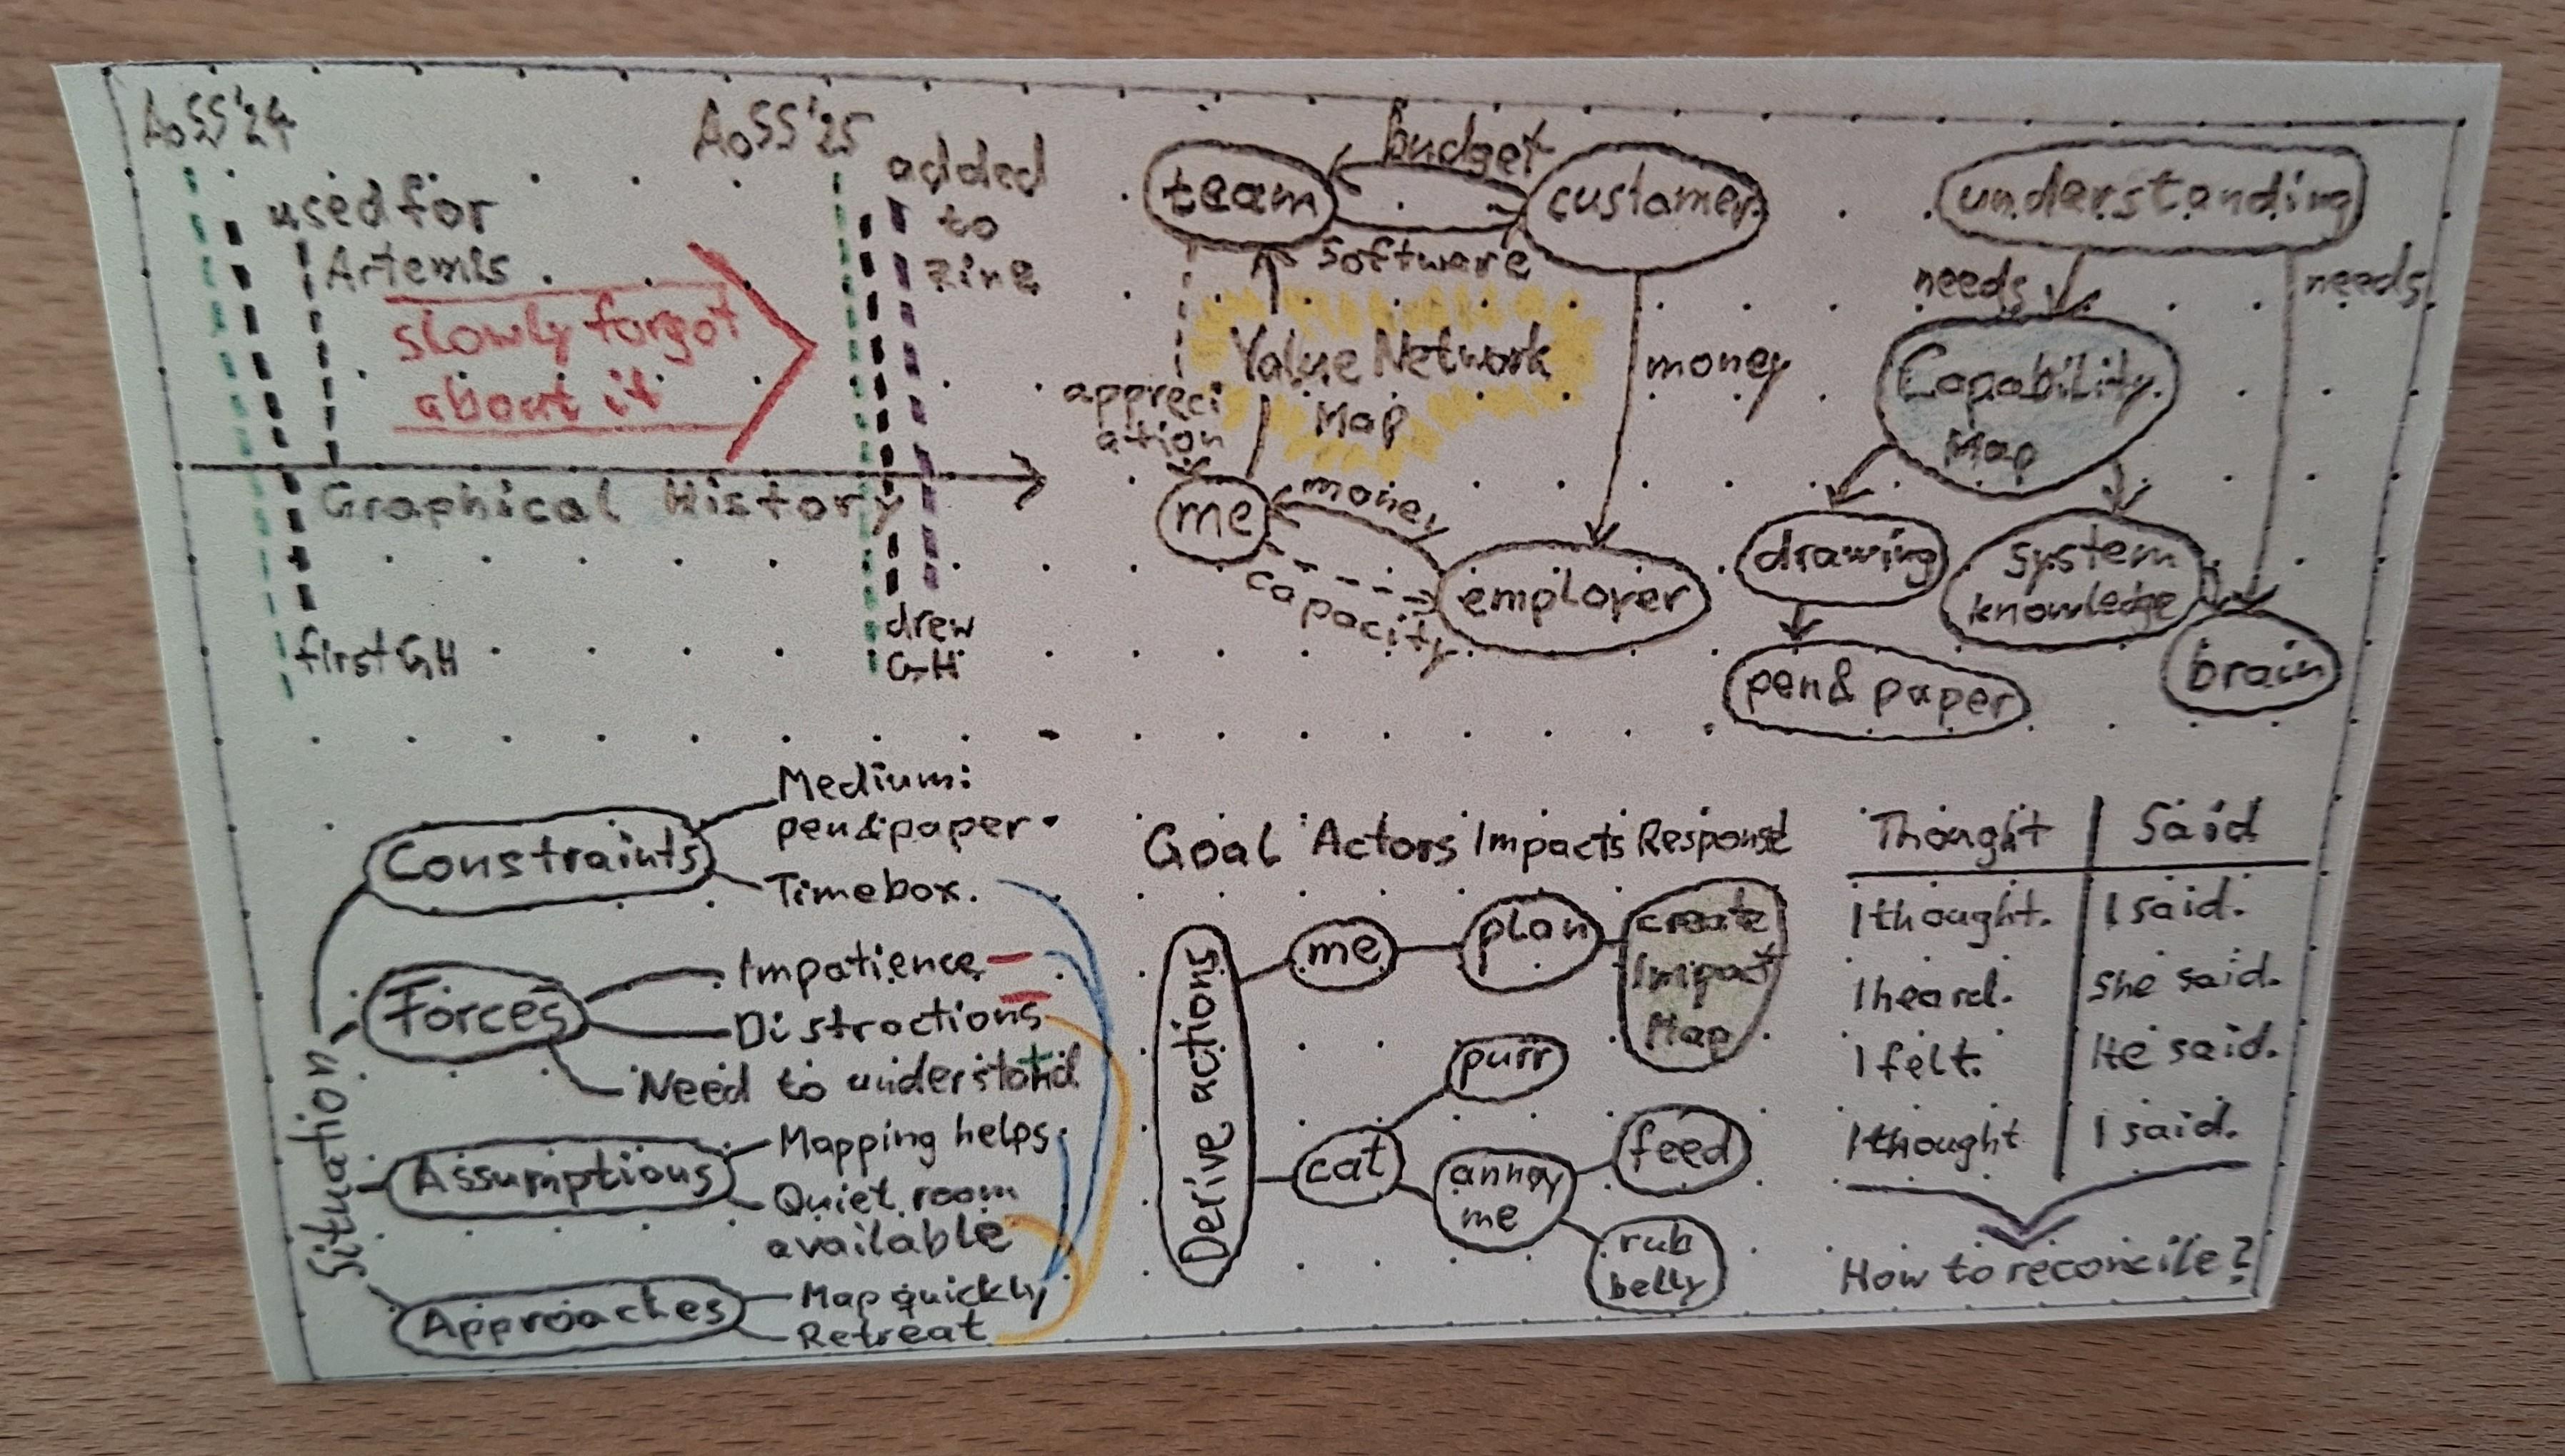 AoSS'24
AoSS'25
used for
Artemis
added
to
zine
slowly forgot
about it
Graphical History
first GH
drew
GH
team
budget
customer
Software
Value Network
Map
appreci
ation
money
me
money
capacity
employer
understanding
needs
needs
Capability
Map
drawing
System
knowledge
pen & paper
brain
Situation
Constraints
Medium:
pen & paper
Timebox.
Forces
Impatience
Distractions
Need to understand
Assumptions
Mapping helps
Quiet room
available
Approaches
Map quickly
Retreat
Goal Actors Impacts Response
Derive actions
me
plan
create
Impact
Map
cat
purr
annoy
me
feed
rub
belly
Thought
Said
I thought.
I said.
I heard.
She said.
I felt.
He said.
I thought
I said.
How to reconcile?